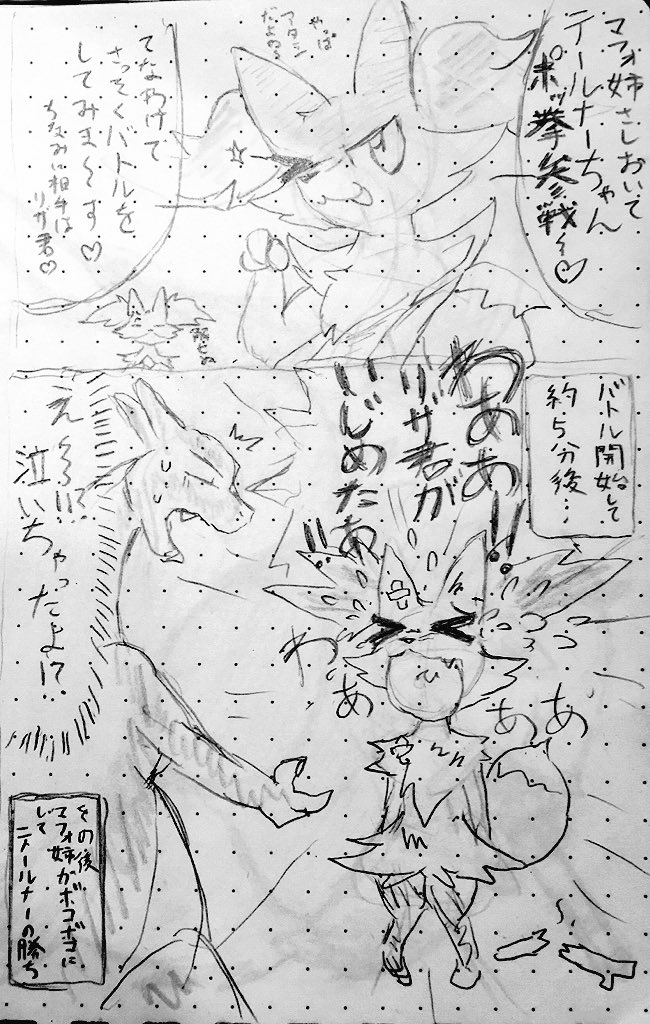 マフォ姉さしおいて
テールナーちゃん
ポッ拳参戦!♡
やっぱ
アタシ
だよね
てなわけで
さっそくバトルを
してみま～す♡
ちなみに相手は
リザ君♡
バトル開始して
約5分後…
わああ!!
リザ君が
いじめたあ
わぁああ
え～!!
泣いちゃったよ!?
その後
マフォ姉がボコボコに
して
テールナーの勝ち